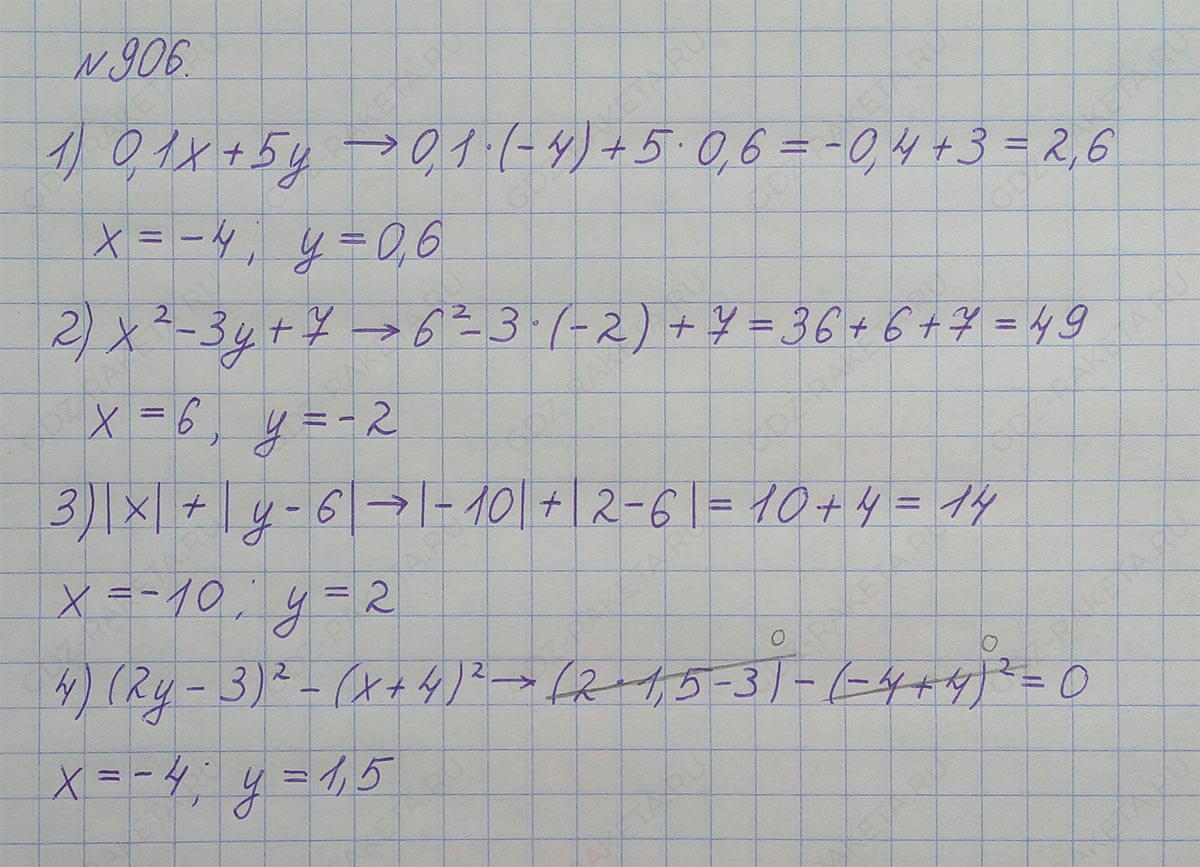 №906.
1) 0,1x + 5y → 0,1 · (-4) + 5 · 0,6 = -0,4 + 3 = 2,6
x = -4; y = 0,6
2) x² - 3y + 7 → 6² - 3 · (-2) + 7 = 36 + 6 + 7 = 49
x = 6, y = -2
3) |x| + |y - 6| → |-10| + |2 - 6| = 10 + 4 = 14
x = -10; y = 2
0 0
4) (2y - 3)² - (x + 4)² → (2 · 1,5 - 3) - (-4 + 4)² = 0
x = -4; y = 1,5
GDZ-RAKETA.RU